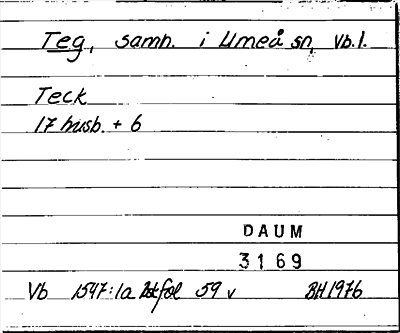 Teg, samh. i Umeå sn, Vb.l.
Teck
17 husb. + 6
DAUM
3169
Vb 1547:1a fol 59 v BH 1976